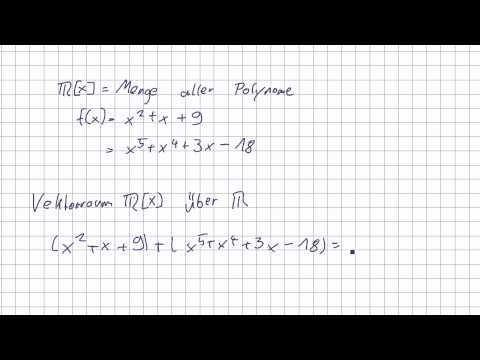 ℝ[x] = Menge aller Polynome
f(x) = x² + x + 9
= x⁵ + x⁴ + 3x − 18
Vektorraum ℝ[x] über ℝ
(x² + x + 9) + (x⁵ + x⁴ + 3x − 18) =